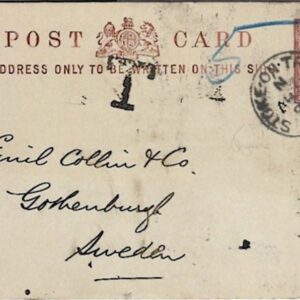 POST CARD
ADDRESS ONLY TO BE WRITTEN ON THIS
T
5
STOKE-ON-T
N
Emil Collin & Co.
Gothenburgh
Sweden